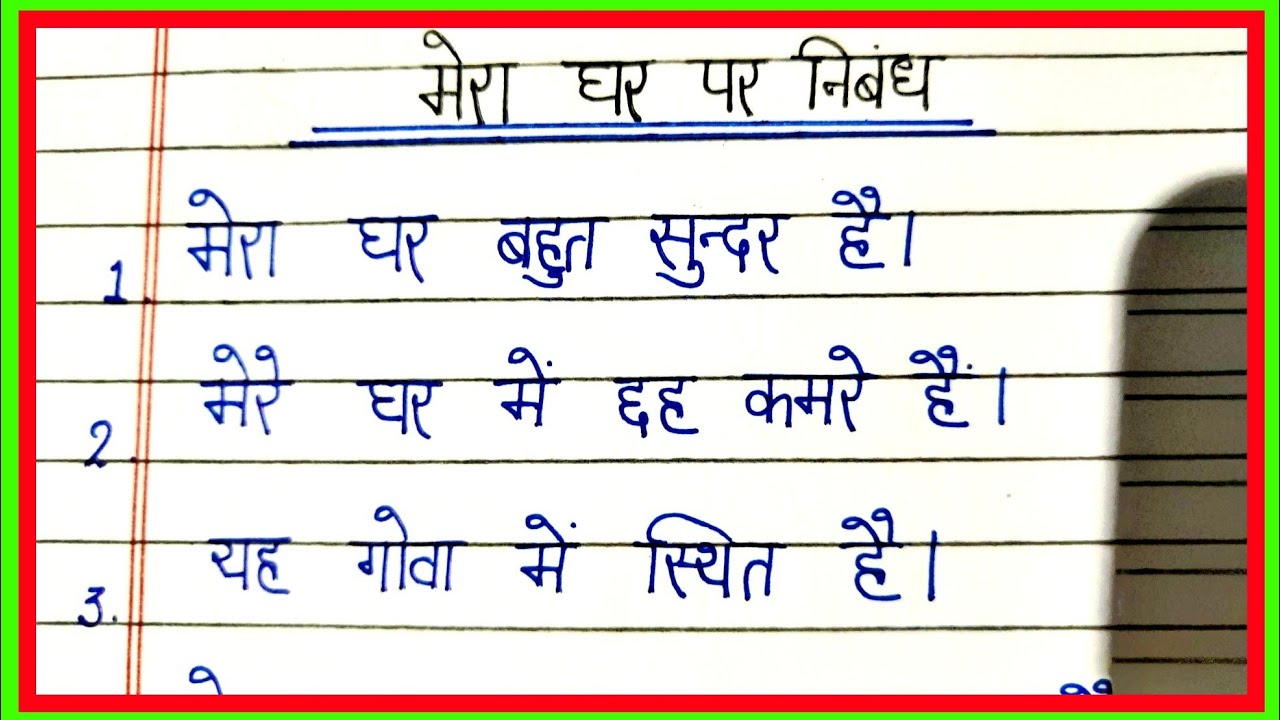 मेरा घर पर निबंध
1. मेरा घर बहुत सुन्दर है।
2. मेरे घर में छह कमरे हैं।
3. यह गोवा में स्थित है।